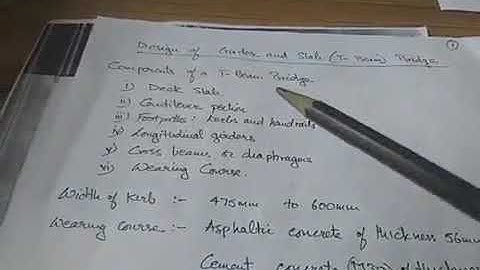 Design of Girder and Slab (T-Beam) Bridge
Components of a T-Beam Bridge
i) Deck Slab
ii) Cantilever portion
iii) Footpaths; kerbs and handrails
iv) Longitudinal girders
v) Cross beams or diaphragms
vi) Wearing Course.
Width of Kerb :- 475mm to 600mm
Wearing course :- Asphaltic concrete of thickness 56mm
Cement concrete of thickness